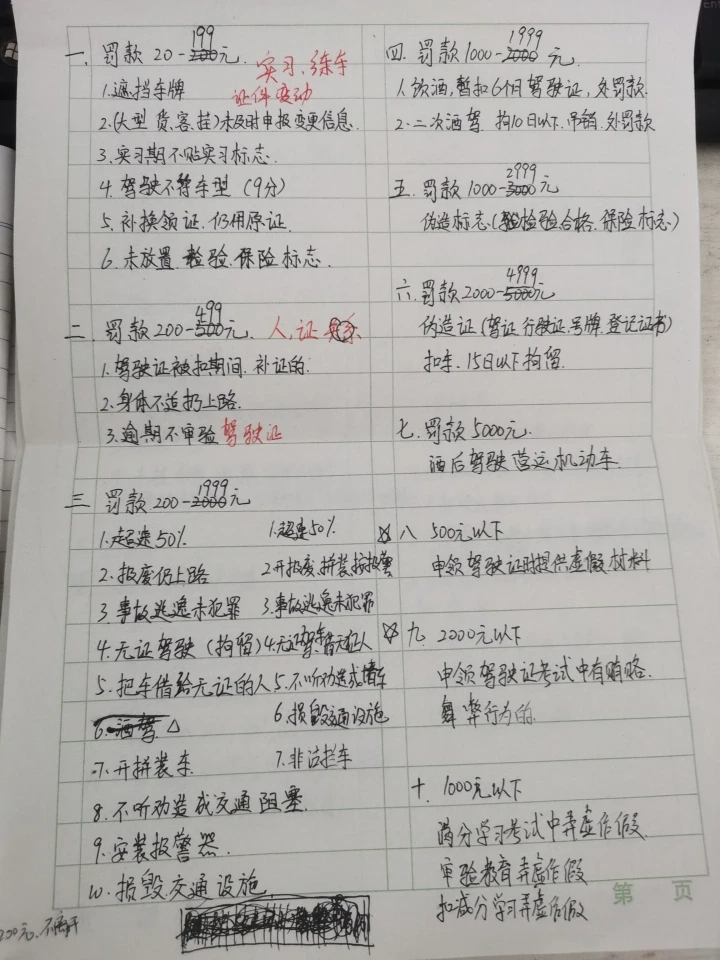 一、罚款20-199元.
实习、练车
证件变动
1.遮挡车牌
2.(大型 货.客.挂)未及时申报变更信息.
3.实习期不贴实习标志.
4.驾驶不符车型 (9分)
5.补换领证.仍用原证.
6.未放置 检验.保险标志.
二、罚款200-499元. 人,证
1.驾驶证被扣期间.补证的.
2.身体不适扔上路.
3.逾期不审验驾驶证
三 罚款200-1999元
1.超速50%
2.报废仍上路
3.事故逃逸未犯罪
4.无证驾驶(拘留)
5.把车借给无证的人
6.酒驾 △
7.开拼装车
8.不听劝造成交通阻塞.
9.安装报警器.
10.损毁交通设施
1.超速50%
2.开报废.拼装
3.事故逃逸未犯罪
4.无证驾车.借无证人
5.不听劝造成
6.损毁交通设施
7.非法拦车
四.罚款1000-1999元
1.饮酒,暂扣6个月驾驶证,处罚款.
2.二次酒驾 拘10日以下.吊销.处罚款
五.罚款1000-2999元
伪造标志(检验合格.保险标志)
六.罚款2000-4999元
伪造证(驾证.行驶证.号牌.登记证书)
扣车.15日以下拘留.
七.罚款5000元.
酒后驾驶营运机动车.
☆八 500元以下
申领驾驶证时提供虚假材料
☆九. 2000元以下
申领驾驶证考试中有贿赂.
舞弊行为的.
十. 1000元以下
满分学习考试中弄虚作假.
审验教育弄虚作假
扣减分学习弄虚作假
第 页